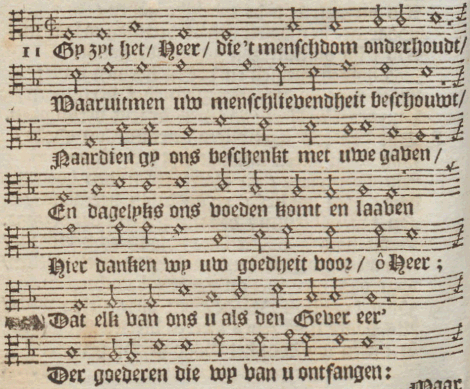 11 Gy zyt het/ Heer/ die't menschdom onderhoudt/
Waaruitmen uw menschlievendheit beschouwt/
Naardien gy ons beschenkt met uwe gaven/
En dagelyks ons voeden komt en laaven
Hier danken wy uw goedheit voor/ ô Heer;
Dat elk van ons u als den Gever eer'
Der goederen die wy van u ontfangen:
Maar